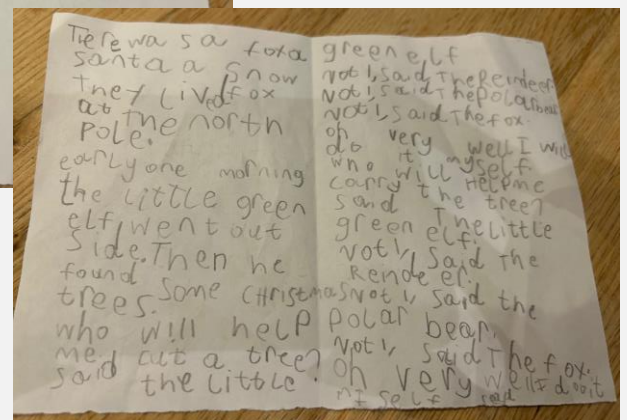 There wa s a fox a
santa a Snow
they Lived fox
at the north
Pole.
early one morning
the little green
elf, went out
Side. Then he
found some CHristmas
trees.
who will help
me cut a tree?
said the little
green elf
not I, said The Reindeer.
not I, said The Polar bear
not I, said The fox.
oh very well I will
do it myself.
who will HelPme
carry the tree?
said The Little
green elf.
not I, said The
Rende er.
not I, said the
Polar bear.
not I, said The fox.
oh very well I do it